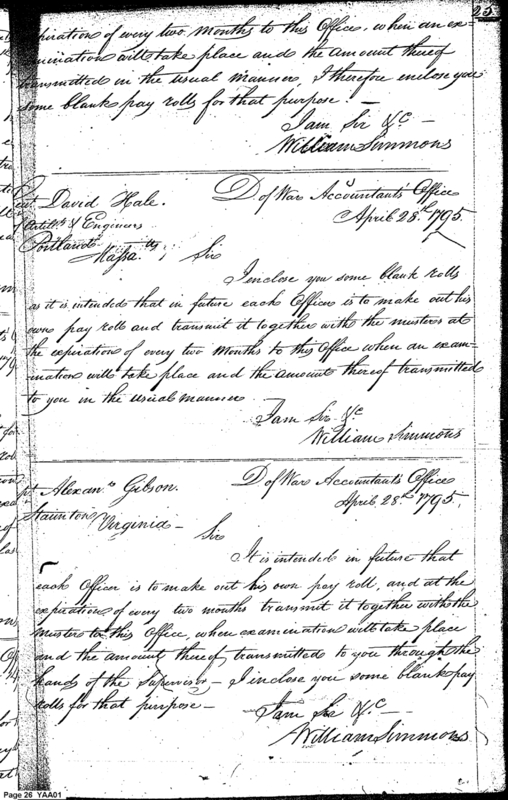 25
piration of every two Months to this Office, when an ex-
amination will take place and the Amount thereof
transmitted in the usual Manner, I therefore enclose you
some blank pay rolls for that purpose. —
I am Sir &c —
William Simmons
David Hale.
D of War Accountants Office
Artily & Engineers
April 28th 1795
Portland
Massa.
Sir
I enclose you some blank rolls
as it is intended that in future each Officer is to make out his
own pay roll and transmit it together with the musters at
the expiration of every two Months to this Office when an exam-
ination will take place and the Amount thereof transmitted
to you in the usual manner
I am Sir &c
William Simmons
Alexanr Gibson.
D of War Accountants Office
Staunton
April 28th 1795.
Virginia —
Sir
It is intended in future that
each Officer is to make out his own pay roll, and at the
expiration of every two months transmit it together with the
musters to this Office, when examination will take place
and the amount thereof transmitted to you through the
hands of the Supervisor — I inclose you some blank pay
rolls for that purpose —
I am Sir &c —
William Simmons
Page 26 YAA01